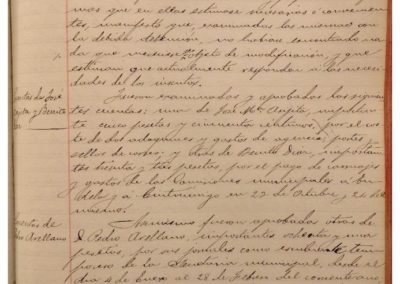 mas que en ellas estimase necesarias ó convenien-
tes, manifestó que, examinadas las mismas con
la debida detención, no habian encontrado na-
da que mereciese objeto de modificación, y que
estiman que actualmente responden á las necesi-
dades de los
Cuentas de José
Azpita y Benito
Fueron examinadas y aprobadas las siguien-
tes cuentas: una de José Mª Azpita, importan-
te cinco pesetas y cincuenta céntimos, por el cos-
te de dos adoquines y gastos de agencia, postes,
sellos de correo; y otras de Benito Diaz, importan-
tes treinta y tres pesetas, por el pago de carruajes
y gastos de las Comisiones municipales á
y á Cintruénigo en 22 de Octubre y 21 del
mismo.
Cuentas de
Pedro Arellano
Asimismo fueron aprobadas otras de
D. Pedro Arellano, importantes ochenta y una
pesetas, por sus jornales como escribiente tem-
porero de la Secretaría municipal desde el
día 4 de Enero al 28 de Febrero del corriente año